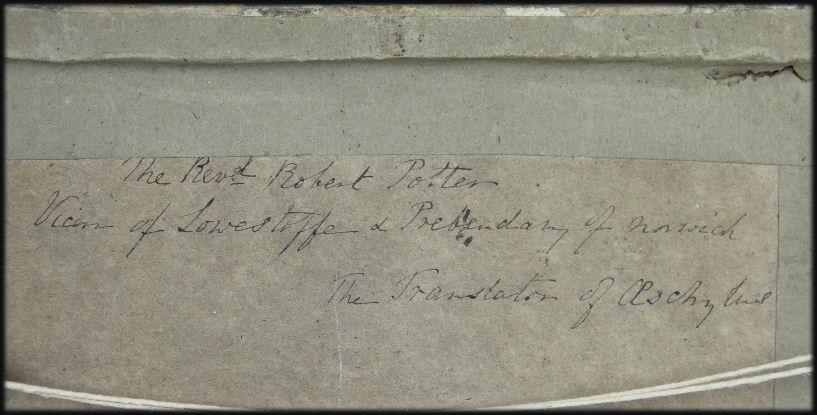 The Revd Robert Potter
Vicar of Lowestoffe & Prebendary of Norwich
The Translator of Æschylus